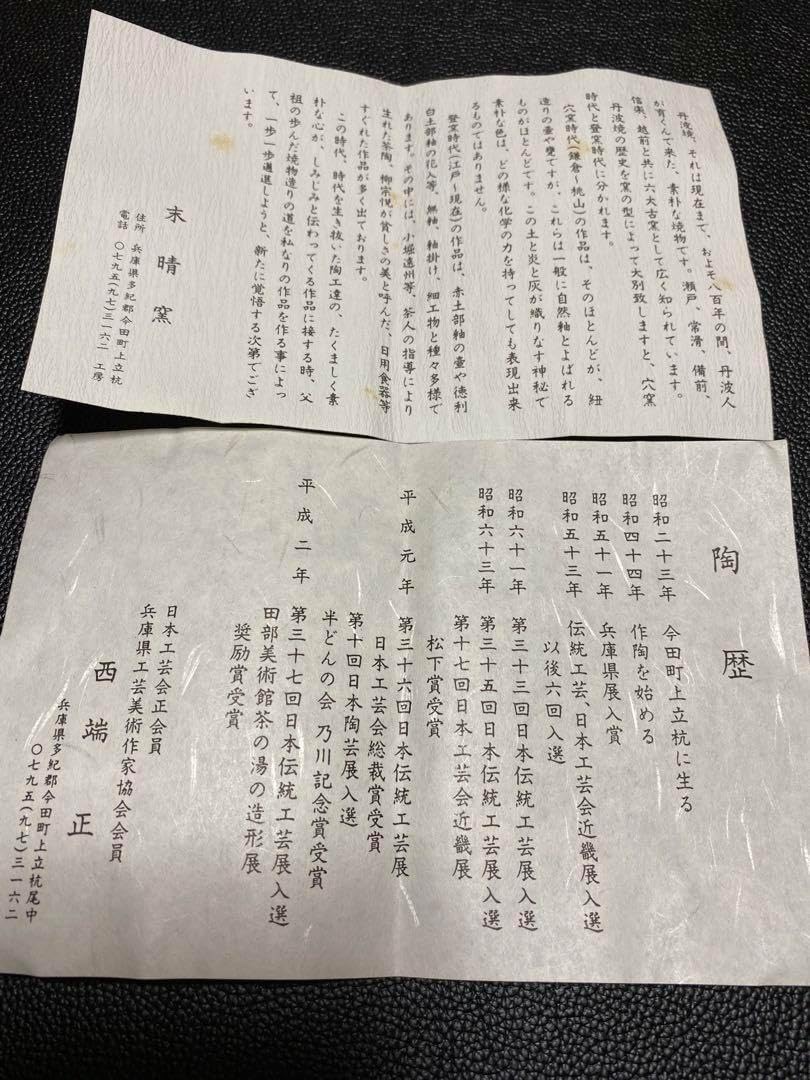 丹波焼、それは現在まで、およそ八百年の間、丹波人
が育くんで来た、素朴な焼物です。瀬戸、常滑、備前、
信楽、越前と共に六大古窯として広く知られています。
丹波焼の歴史を窯の型によって大別致しますと、穴窯
時代と登窯時代に分かれます。
穴窯時代(鎌倉~桃山)の作品は、そのほとんどが、紐
造りの壷や甕ですが、これらは一般に自然釉とよばれる
ものがほとんどです。この土と炎と灰が織りなす神秘で
素朴な色は、どの様な化学の力を持ってしても表現出来
るものではありません。
登窯時代(江戸~現在)の作品は、赤土部釉の壷や徳利
白土部釉の花入等、無釉、釉掛け、細工物と種々多様で
あります。その中には、小堀遠州等、茶人の指導により
生れた茶陶、柳宗悦が貧しさの美と呼んだ、日用食器等
すぐれた作品が多く出ております。
この時代、時代を生き抜いた陶工達の、たくましく素
朴な心が、しみじみと伝わってくる作品に接する時、父
祖の歩んだ焼物造りの道を私なりの作品を作る事によっ
て、一歩一歩邁進しようと、新たに覚悟する次第でござ
います。
末晴窯
住所 兵庫県多紀郡今田町上立杭
電話 〇七九五(九七)三一六二 工房
陶歴
昭和二十三年 今田町上立杭に生る
昭和四十四年 作陶を始める
昭和五十一年 兵庫県展入賞
昭和五十三年 伝統工芸、日本工芸会近畿展入選
以後六回入選
昭和六十一年 第三十三回日本伝統工芸展入選
昭和六十三年 第三十五回日本伝統工芸展入選
第十七回日本工芸会近畿展
松下賞受賞
平成元年 第三十六回日本伝統工芸展
日本工芸会総裁賞受賞
第十回日本陶芸展入選
半どんの会 乃川記念賞受賞
平成二年 第三十七回日本伝統工芸展入選
田部美術館茶の湯の造形展
奨励賞受賞
日本工芸会正会員
兵庫県工芸美術作家協会会員
西端正
兵庫県多紀郡今田町上立杭尾中
〇七九五(九七)三一六二